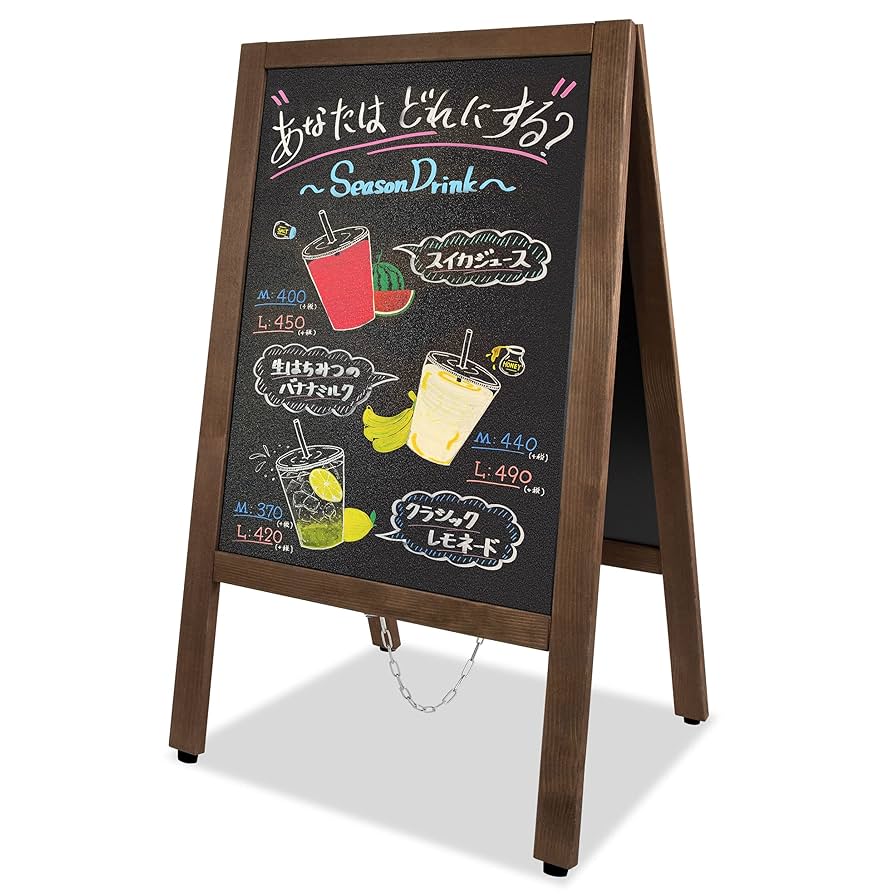 "あなたは どれにする?"
～Season Drink～
SALT
スイカジュース
M:400(+税)
L:450(+税)
生はちみつの
バナナミルク
HONEY
M:440(+税)
L:490(+税)
M:370(+税)
L:420(+税)
クラシック
レモネード